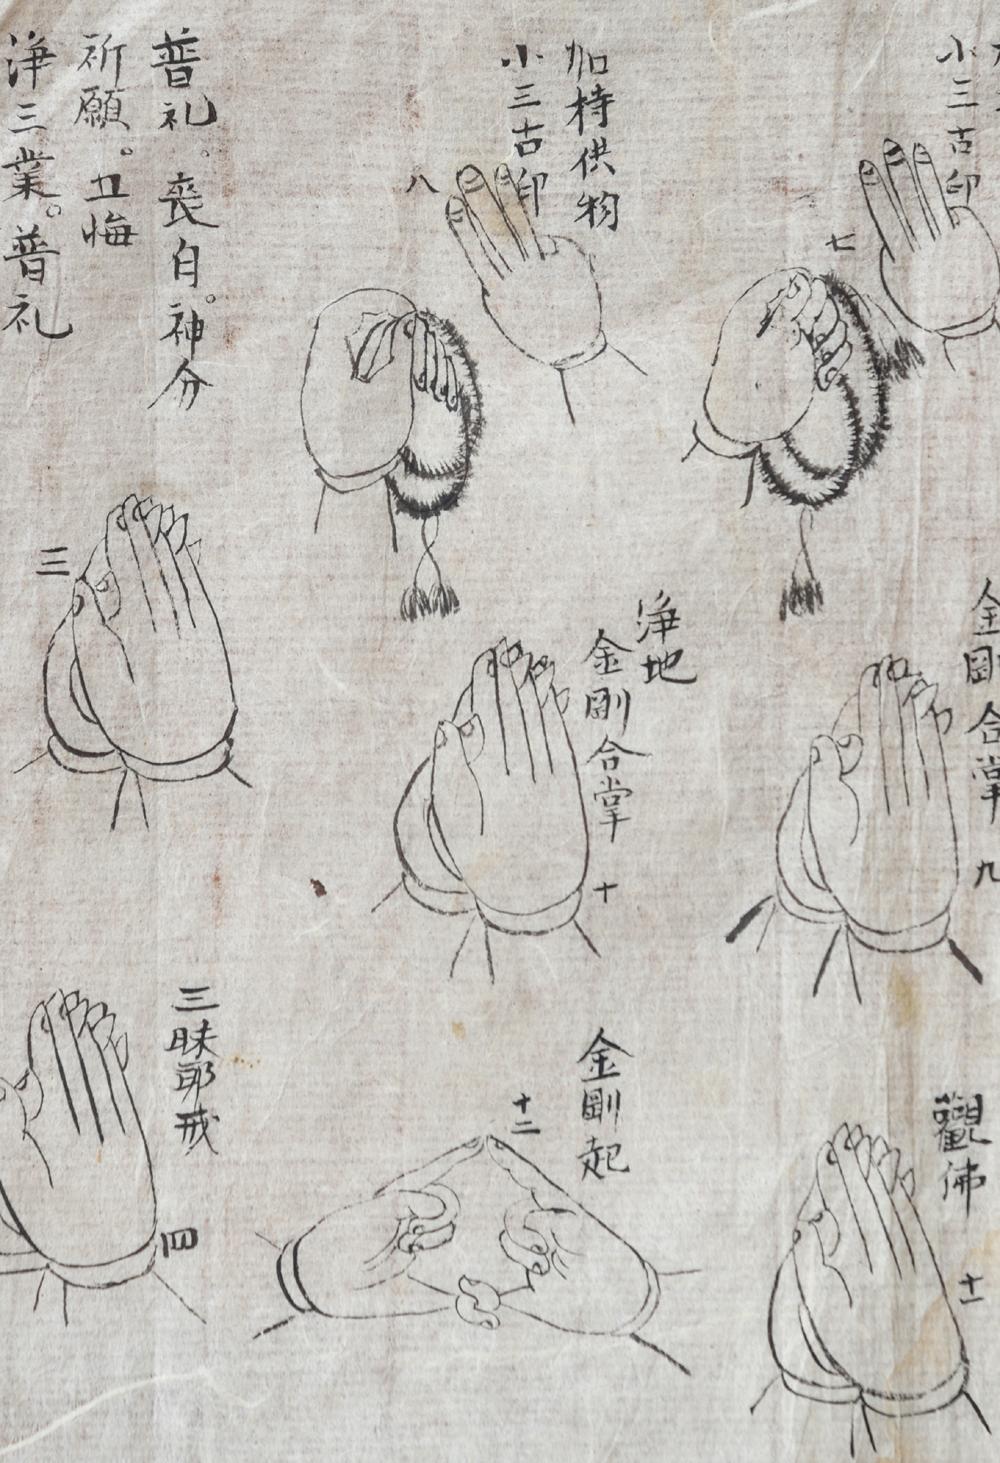 小三古印
七
加持供物
小三古印
八
普礼。表白。神分
祈願。五悔
浄三業。普礼
三
金剛合掌
九
浄地
金剛合掌
十
觀佛
十一
金剛起
十二
三昧耶戒
四